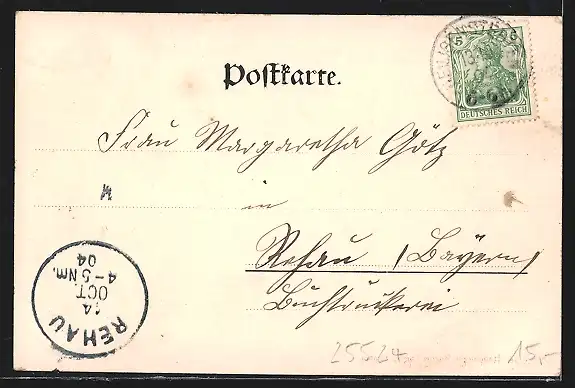 Postkarte.
5
DEUTSCHES REICH
Frau Margaretha Götz
M
in
Rehau (Bayern)
Buchdruckerei
REHAU
14
OCT.
4-5 Nm.
04
25524
15,-